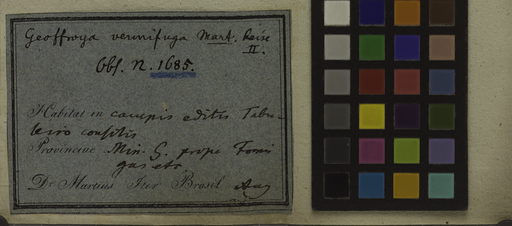 Geoffroya vermifuga Mart. Reise
II.
Obs. n. 1685.
Habitat in campis editis Tabu-
leiro consitis
Provinciae Min. G. prope Formi
gas etc
Dr. Martius Iter Brasil. Aug